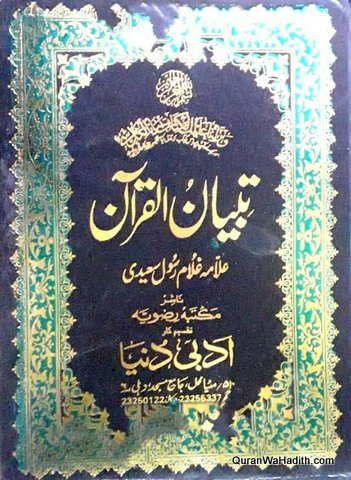 تبیانُ القرآن
علامہ غلام رسول سعیدی
ناشر
مکتبہ رضویہ
تقسیم کار
ادبی دُنیا
مٹیا محل، جامع مسجد دہلی
23250122 23255337
QuranWaHadith.com